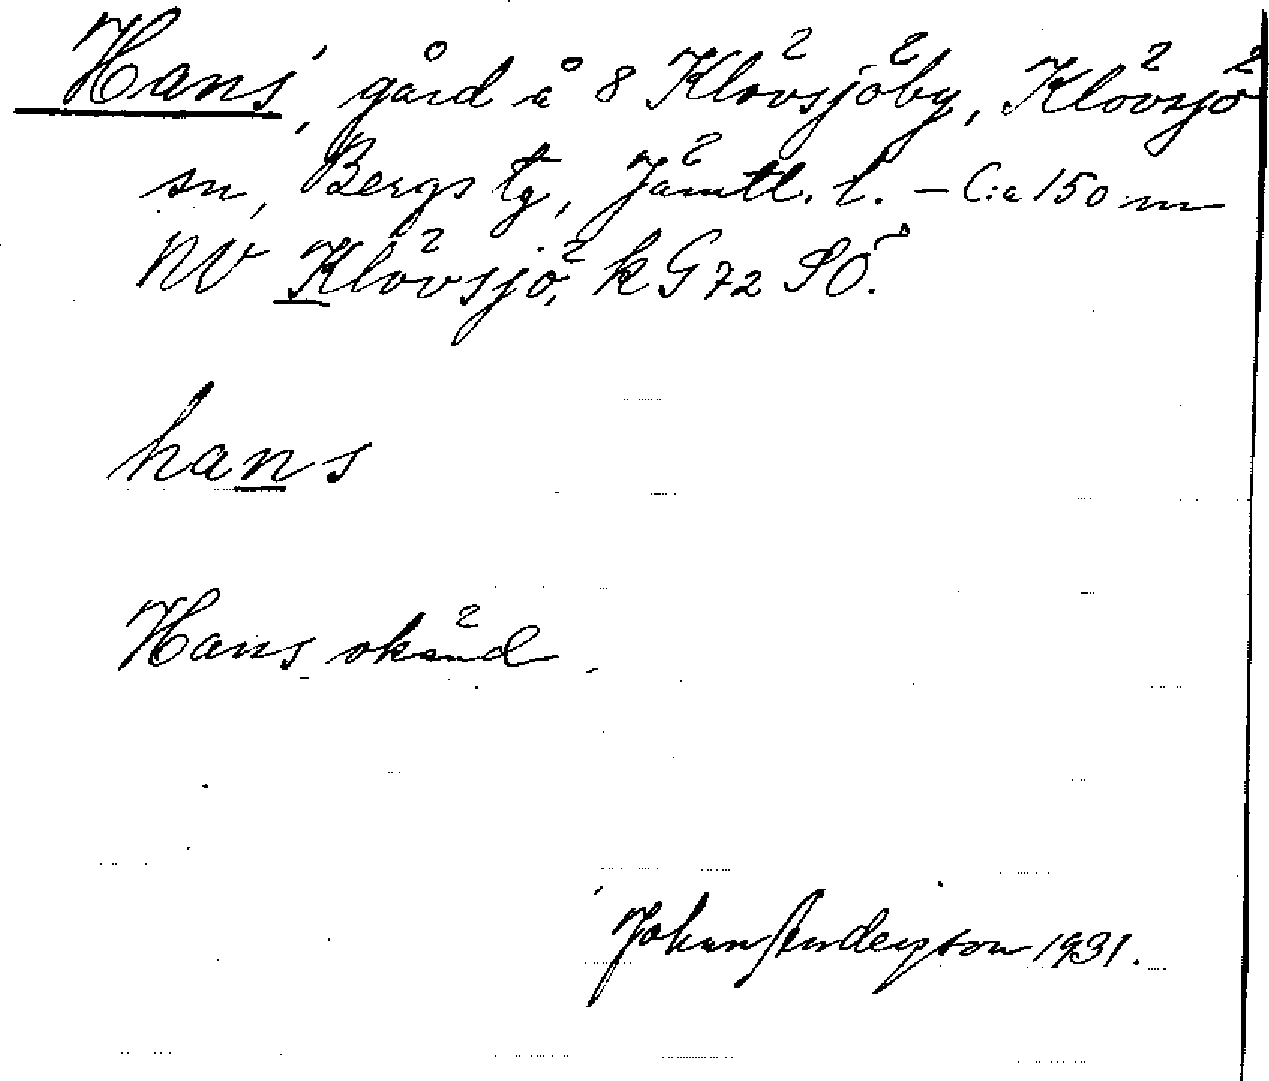 Hans', gård å 8 Klövsjöby, Klövsjö
sn, Bergs tg, Jämtl. l. – C:a 150 m
NV Klövsjö, k G 72 SÖ.
hans
Hans okänd.
Johan Anderzson 1931.